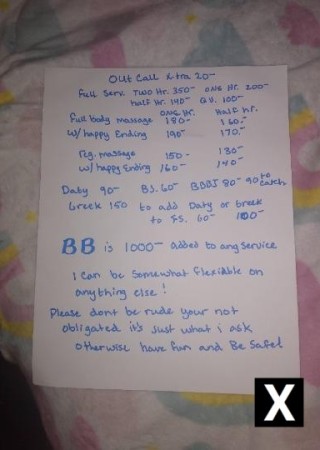 Out Call x-tra 20-
Full Serv. Two Hr. 350- one Hr. 200-
half Hr. 140- QV. 100-
one Hr. Half Hr.
Full body massage 180- 160.-
w/ happy Ending 190- 170.-
Reg. massage 150- 130-
w/ happy Ending 160- 140-
Daty 90- BJ. 60- BBBJ 80- 90 to catch
Greek 150 to add Daty or Greek
to FS. 60- 100-
BB is 1000- added to any service
I can be somewhat flexidble on
anything else!
Please dont be rude your not
obligated it's just what i ask
otherwise have fun and Be Safe!
X